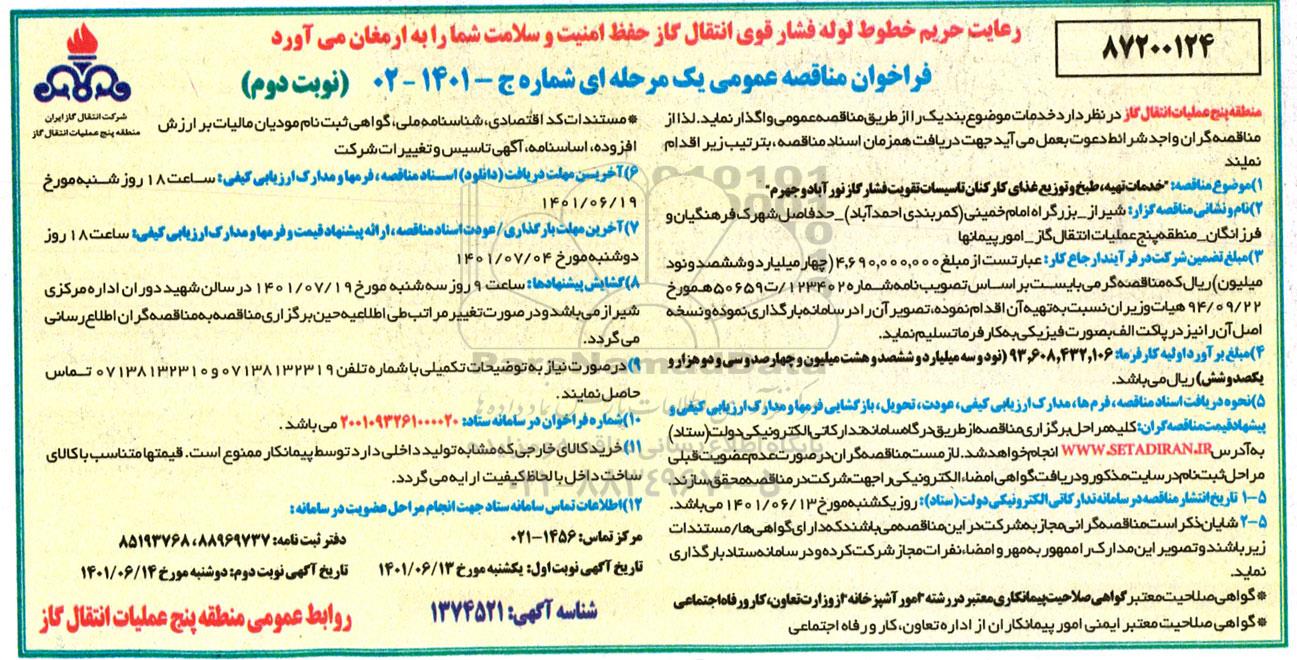 ۸۷۲۰۰۱۲۴
رعایت حریم خطوط لوله فشار قوی انتقال گاز حفظ امنیت و سلامت شما را به ارمغان می آورد
فراخوان مناقصه عمومی یک مرحله ای شماره ج – ۱۴۰۱ - ۰۲ (نوبت دوم)
شرکت انتقال گاز ایران
منطقه پنج عملیات انتقال گاز
منطقه پنج عملیات انتقال گاز در نظر دارد خدمات موضوع بند یک را از طریق مناقصه عمومی واگذار نماید. لذا از
مناقصه گران واجد شرائط دعوت بعمل می آید جهت دریافت همزمان اسناد مناقصه، بترتیب زیر اقدام
نمایند
۱)موضوع مناقصه: "خدمات تهیه، طبخ و توزیع غذای کارکنان تاسیسات تقویت فشار گاز نورآباد و جهرم"
۲)نام و نشانی مناقصه گزار: شیراز_بزرگراه امام خمینی(کمربندی احمدآباد)_حدفاصل شهرک فرهنگیان و
فرزانگان_منطقه پنج عملیات انتقال گاز_امور پیمانها
۳)مبلغ تضمین شرکت در فرآیند ارجاع کار: عبارتست از مبلغ ۴,۶۹۰,۰۰۰,۰۰۰ (چهار میلیارد و ششصد و نود
میلیون) ریال که مناقصه گر می بایست بر اساس تصویب نامه شماره ۱۲۳۴۰۲/ت۵۰۶۵۹هـ مورخ
۹۴/۰۹/۲۲ هیات وزیران نسبت به تهیه آن اقدام نموده، تصویر آن را در سامانه بارگذاری نموده و نسخه
اصل آن را نیز در پاکت الف بصورت فیزیکی به کارفرما تسلیم نماید.
۴)مبلغ برآورد اولیه کارفرما: ۹۳,۶۰۸,۴۳۲,۱۰۶ (نود و سه میلیارد و ششصد و هشت میلیون و چهارصد و سی و دو هزار و
یکصد و شش) ریال می باشد.
۵)نحوه دریافت اسناد مناقصه، فرم ها، مدارک ارزیابی کیفی، عودت، تحویل، بازگشایی فرمها و مدارک ارزیابی کیفی و
پیشنهاد قیمت مناقصه گران: کلیه مراحل برگزاری مناقصه از طریق درگاه سامانه تدارکاتی الکترونیکی دولت (ستاد)
به آدرس WWW.SETADIRAN.IR انجام خواهد شد. لازمست مناقصه گران در صورت عدم عضویت قبلی
مراحل ثبت نام در سایت مذکور و دریافت گواهی امضاء الکترونیکی را جهت شرکت در مناقصه محقق سازند.
۵-۱ تاریخ انتشار مناقصه در سامانه تدارکاتی الکترونیکی دولت (ستاد): روز یکشنبه مورخ ۱۴۰۱/۰۶/۱۳ می باشد.
۵-۲ شایان ذکر است مناقصه گرانی مجاز به شرکت در این مناقصه می باشند که دارای گواهی ها/مستندات
زیر باشند و تصویر این مدارک را ممهور به مهر و امضاء نفرات مجاز شرکت کرده و در سامانه ستاد بارگذاری
نماید.
* گواهی صلاحیت معتبر گواهی صلاحیت پیمانکاری معتبر در رشته "امور آشپزخانه" از وزارت تعاون، کار و رفاه اجتماعی
* گواهی صلاحیت معتبر ایمنی امور پیمانکاران از اداره تعاون، کار و رفاه اجتماعی
* مستندات کد اقتصادی، شناسنامه ملی، گواهی ثبت نام مودیان مالیات بر ارزش
افزوده، اساسنامه، آگهی تاسیس و تغییرات شرکت
۶)آخرین مهلت دریافت (دانلود) اسناد مناقصه، فرمها و مدارک ارزیابی کیفی: ساعت ۱۸ روز شنبه مورخ
۱۴۰۱/۰۶/۱۹
۷)آخرین مهلت بارگذاری / عودت اسناد مناقصه، ارائه پیشنهاد قیمت و فرمها و مدارک ارزیابی کیفی: ساعت ۱۸ روز
دوشنبه مورخ ۱۴۰۱/۰۷/۰۴
۸)گشایش پیشنهادها: ساعت ۹ روز سه شنبه مورخ ۱۴۰۱/۰۷/۱۹ در سالن شهید دوران اداره مرکزی
شیراز می باشد و در صورت تغییر مراتب طی اطلاعیه حین برگزاری مناقصه به مناقصه گران اطلاع رسانی
می گردد.
۹)در صورت نیاز به توضیحات تکمیلی با شماره تلفن ۰۷۱۳۸۱۳۲۳۱۹ و ۰۷۱۳۸۱۳۲۳۱۰ تماس
حاصل نمایند.
۱۰)شماره فراخوان در سامانه ستاد: ۲۰۰۱۰۹۳۲۶۱۰۰۰۰۲۰ می باشد.
۱۱)خرید کالای خارجی که مشابه تولید داخلی دارد توسط پیمانکار ممنوع است. قیمتها متناسب با کالای
ساخت داخل با لحاظ کیفیت ارایه می گردد.
۱۲)اطلاعات تماس سامانه ستاد جهت انجام مراحل عضویت در سامانه:
مرکز تماس: ۱۴۵۶-۰۲۱ دفتر ثبت نامه: ۸۸۹۶۹۷۳۷، ۸۵۱۹۳۷۶۸
تاریخ آگهی نوبت اول: یکشنبه مورخ ۱۴۰۱/۰۶/۱۳ تاریخ آگهی نوبت دوم: دوشنبه مورخ ۱۴۰۱/۰۶/۱۴
شناسه آگهی: ۱۳۷۴۵۲۱ روابط عمومی منطقه پنج عملیات انتقال گاز
ParsNamadData
۰۲۱-۸۸۳۴۹۶۷۰-۵